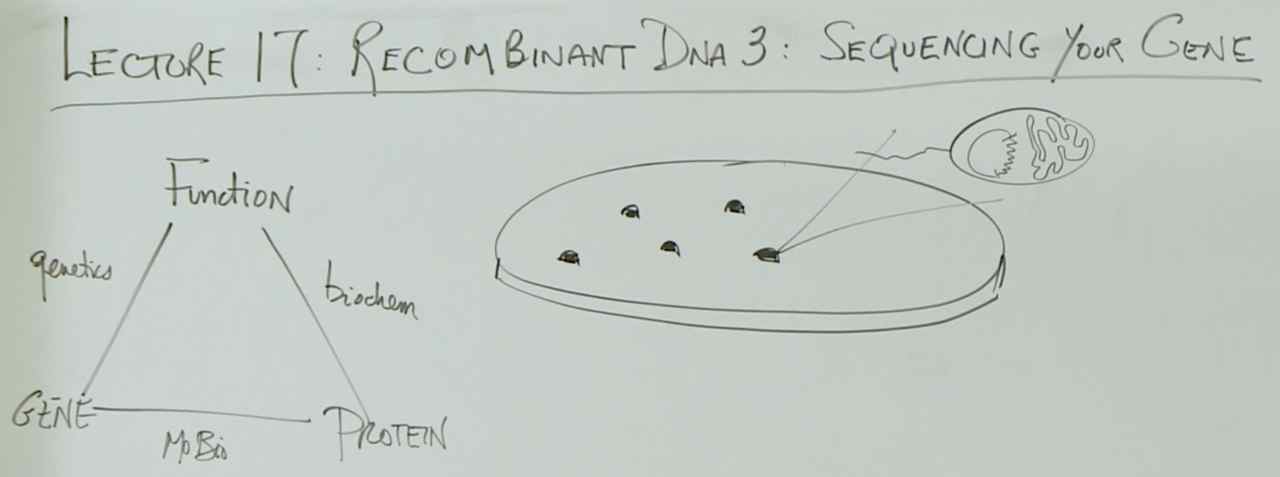 LECTURE 17: RECOMBINANT DNA 3: SEQUENCING YOUR GENE
Function
genetics
biochem
GENE
PROTEIN
MoBio